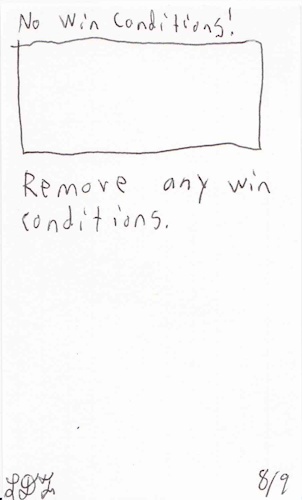 No Win Conditions!
Remove any win
conditions.
8/9